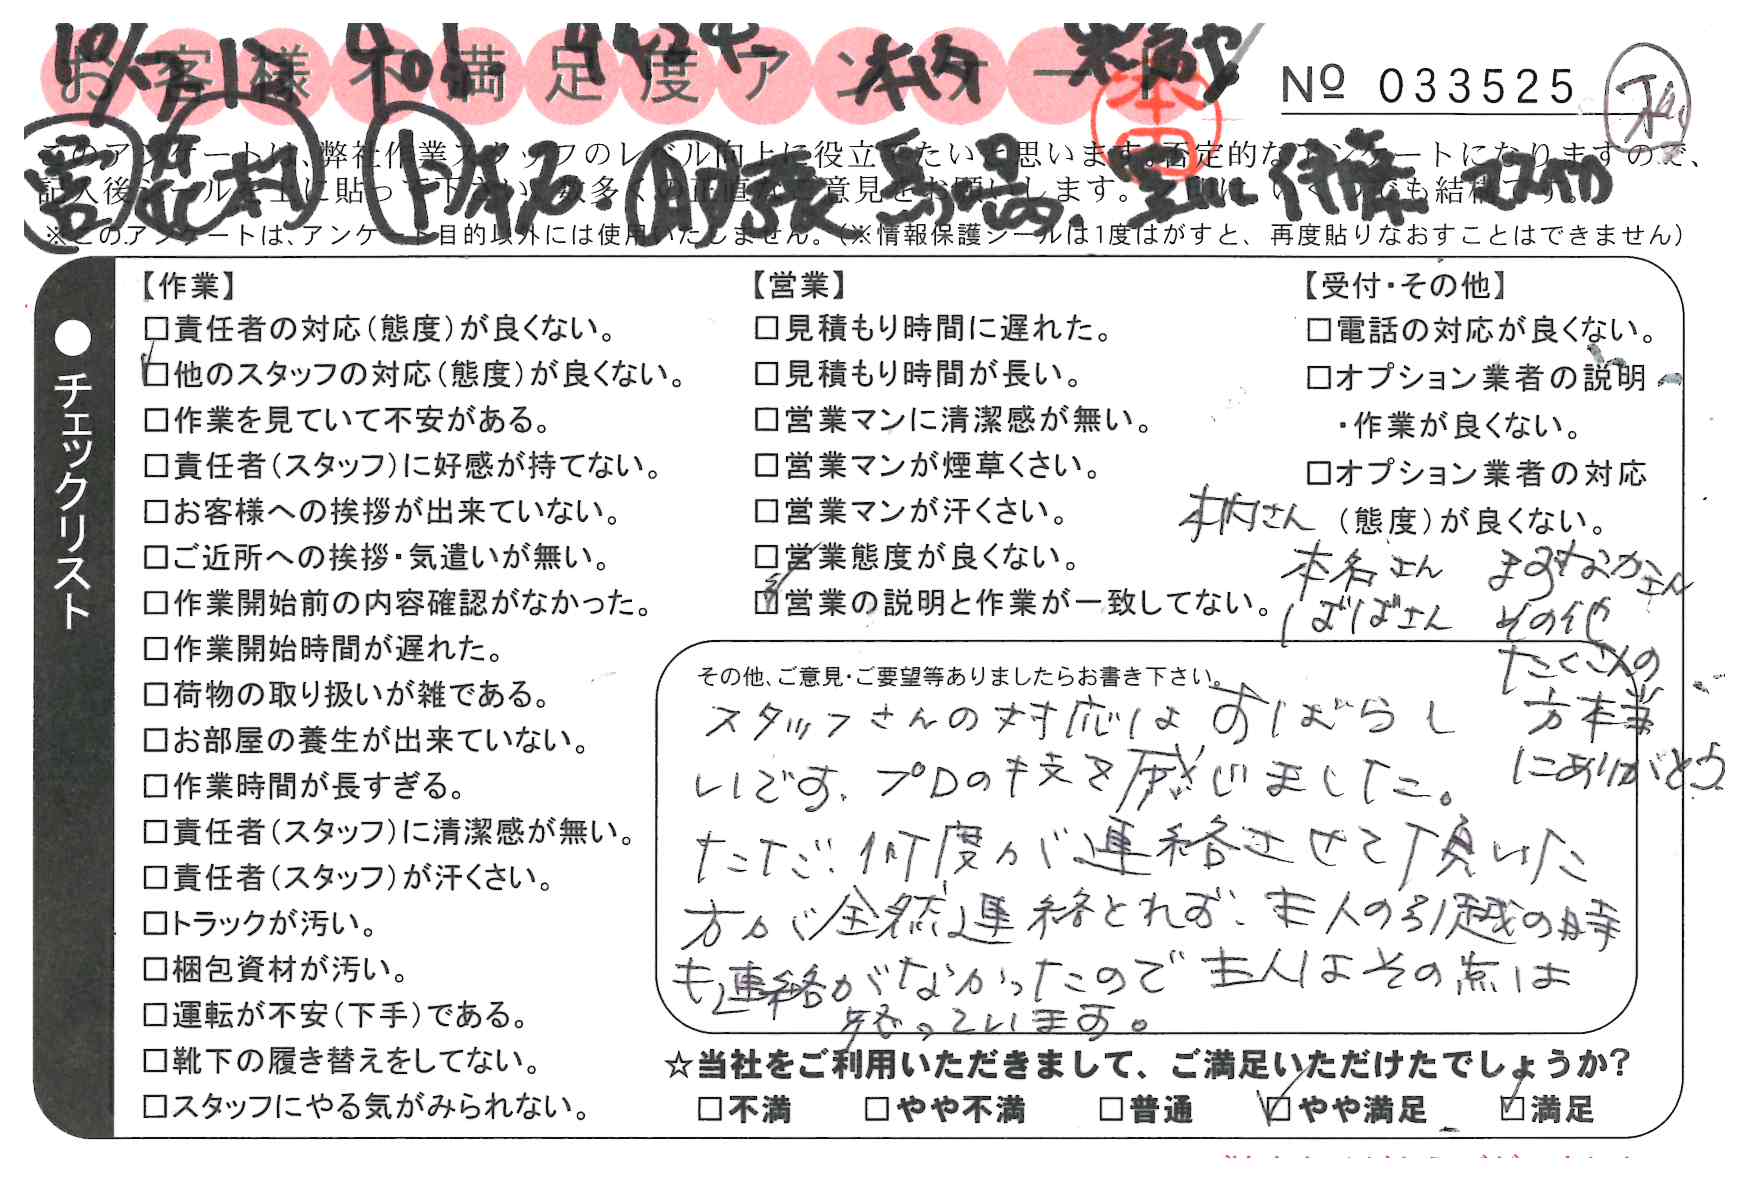 お客様不満足度アンケート
№ 033525
本田
このアンケートは、弊社作業スタッフのレベル向上に役立てたいと思います。否定的なアンケートになりますので、
記入後シールを上に貼って下さい。数多くの正直なご意見をお願いします。
※このアンケートは、アンケート目的以外には使用いたしません。(※情報保護シールは1度はがすと、再度貼りなおすことはできません)
●チェックリスト
【作業】
□責任者の対応(態度)が良くない。
□他のスタッフの対応(態度)が良くない。
□作業を見ていて不安がある。
□責任者(スタッフ)に好感が持てない。
□お客様への挨拶が出来ていない。
□ご近所への挨拶・気遣いが無い。
□作業開始前の内容確認がなかった。
□作業開始時間が遅れた。
□荷物の取り扱いが雑である。
□お部屋の養生が出来ていない。
□作業時間が長すぎる。
□責任者(スタッフ)に清潔感が無い。
□責任者(スタッフ)が汗くさい。
□トラックが汚い。
□梱包資材が汚い。
□運転が不安(下手)である。
□靴下の履き替えをしてない。
□スタッフにやる気がみられない。
【営業】
□見積もり時間に遅れた。
□見積もり時間が長い。
□営業マンに清潔感が無い。
□営業マンが煙草くさい。
□営業マンが汗くさい。
□営業態度が良くない。
□営業の説明と作業が一致してない。
【受付・その他】
□電話の対応が良くない。
□オプション業者の説明
・作業が良くない。
□オプション業者の対応
(態度)が良くない。
木村さん
本名さん ますなかさん
しばばさん その他
たくさんの
方本当
にありがとう
その他、ご意見・ご要望等ありましたらお書き下さい。
スタッフさんの対応はすばらし
いです。プロの技を感じました。
ただ、何度か連絡させて頂いた
方が全然連絡とれず、主人の引越の時
も連絡がなかったので主人はその点は
怒っています。
☆当社をご利用いただきまして、ご満足いただけたでしょうか?
□不満 □やや不満 □普通 ☑やや満足 ☑満足